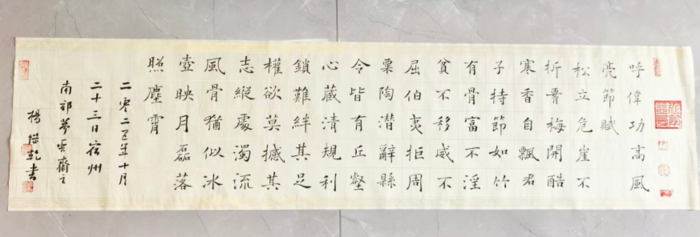 呼偉功高風
亮節賦
松立危崖不
折脊梅開酷
寒香自飄君
子持節如竹
有骨富不淫
貧不移威不
屈伯夷拒周
粟陶潛辭縣
令皆有丘壑
心藏清規利
鎖難絆其足
權欲莫撼其
志縱處濁流
風骨猶似冰
壺映月磊落
照塵霄
二零二五年十月
二十三日宿州
南祁夢雲齋主
楊乾書